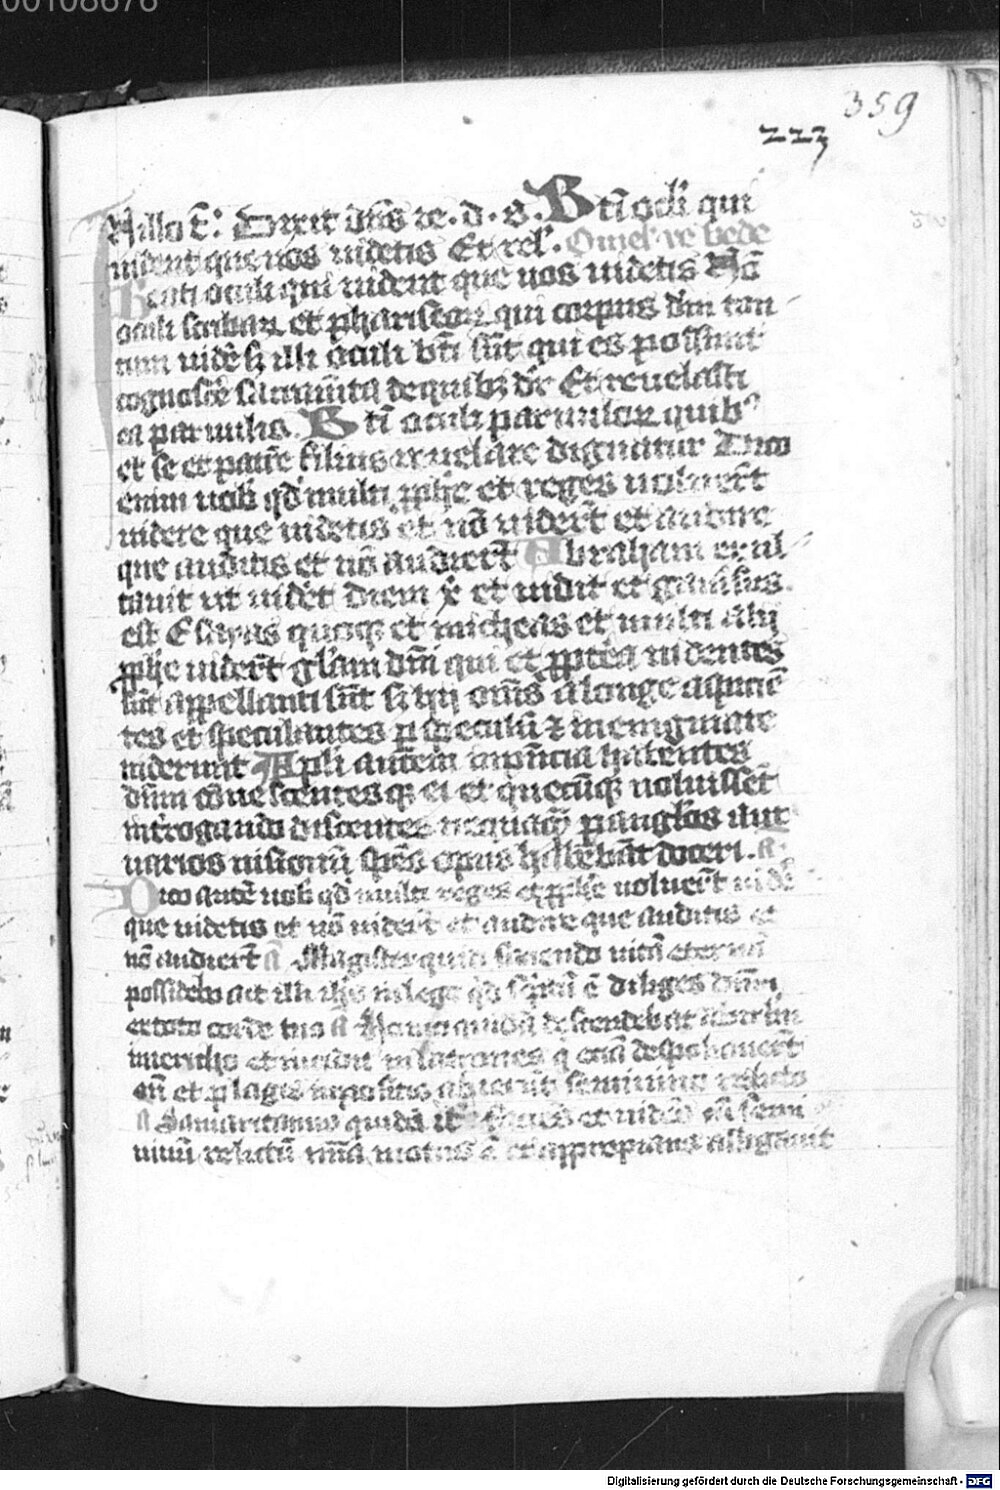 00108676
359
223
Jn illo t̄. Dixit dn̄s ie. d. s. Bt̄i ocl'i qui
uident que uos uidetis Et rel'. Omel' ve bede
Beati oculi qui uident que uos uidetis Nō
oculi scribaꝝ et phariseoꝝ qui corpus dn̄i tan-
tum uidē sꝫ illi oculi bt̄i sūt qui eꝰ possunt
cognoscē sacramēta de quibꝫ dr̄ Et reuelasti
ea paruulis. Bt̄i oculi paruuloꝝ quibꝰ
et se et patrē filius reuelare dignatur Dico
enim uob' qd' multi ꝓphe et reges uoluer̄t
uidere que uidetis et nō uider̄t et audire
que auditis et nō audier̄t Abraham exul-
tauit ut uidēt diem xp̄i et uidit et gauisus
est Esayas quoqꝫ et micheas et multi alij
ꝓphe uider̄t gl'am dn̄i qui et ꝓpt̄ea uidentes
sūt appellanti sūt sꝫ hij om̄s a longe aspiciē-
tes et speculantes ꝑ speculū ⁊ in enigmate
uiderunt Apl'i autem in pn̄cia habentes
dn̄m cōuescentes qꝫ ei et quecūqꝫ uoluissēt
int̄rogando discentes nequaqꝫ ꝑ angl'os aut
uarios uisionū spēs opus habebāt doceri. a
Dico autē uob' qd' multi reges et ꝓphe uoluer̄t uidē
que uidetis et nō uider̄t et audire que auditis et
nō audier̄t a Magister quid faciendo uitā eternā
possidebo ait illi ih̄s in lege qd' sc̄ptū ē diliges dn̄m
ex toto corde tuo a Homo quidā descendebat ab ier̄lm
in iericho et incidit in latrones q̄ etiā despoliauer̄t
eū et plagis inpositis abierūt semiuiuo relicto
a Samaritanus quidā it̄ faciēs et uidēs eū semi
uiuū relictū mīa motus ē et appropians alligauit
Digitalisierung gefördert durch die Deutsche Forschungsgemeinschaft - DFG